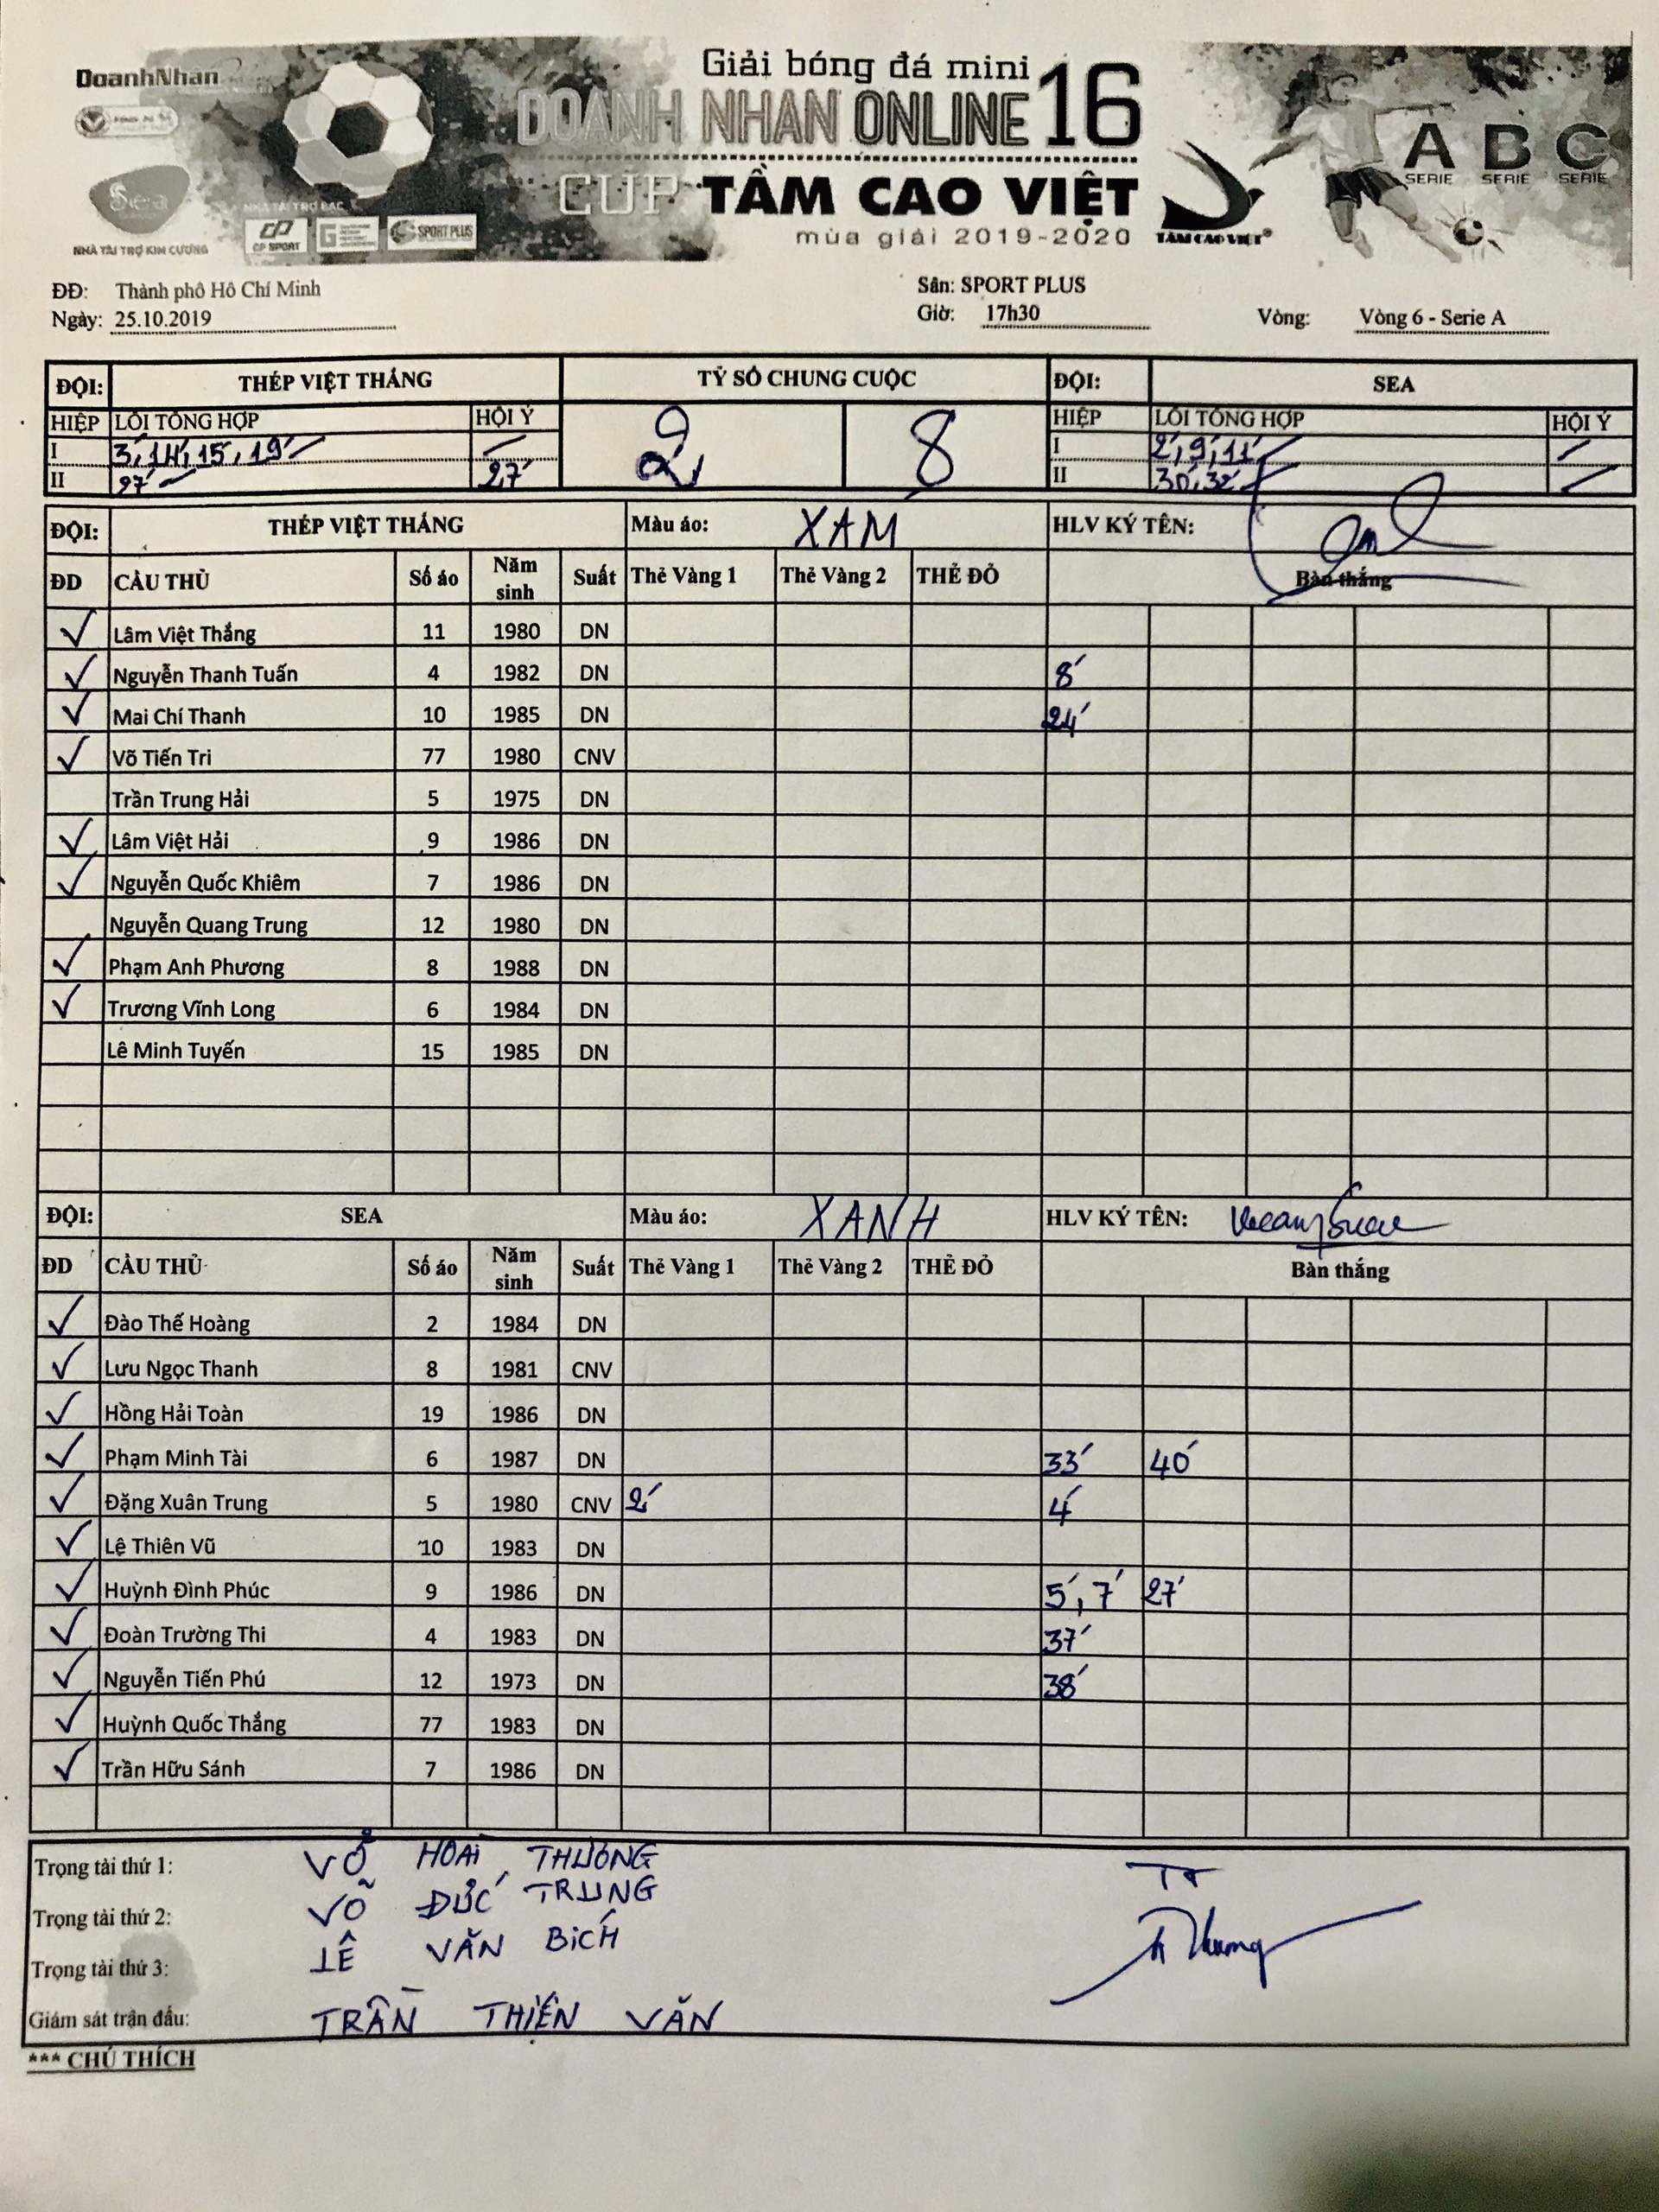 DoanhNhân
Giải bóng đá mini
DOANH NHAN ONLINE 16
CUP TẦM CAO VIỆT
mùa giải 2019-2020
TẦM CAO VIỆT®
A B C
SERIE SERIE SERIE
Sea
NHÀ TÀI TRỢ KIM CƯƠNG
NHÀ TÀI TRỢ BẠC
CP SPORT
SPORT PLUS
ĐĐ: Thành phố Hồ Chí Minh Sân: SPORT PLUS
Ngày: 25.10.2019 Giờ: 17h30 Vòng: Vòng 6 - Serie A
ĐỘI: THÉP VIỆT THẮNG TỶ SỐ CHUNG CUỘC ĐỘI: SEA
HIỆP LỖI TỔNG HỢP HỘI Ý 2 8 HIỆP LỖI TỔNG HỢP HỘI Ý
I 3', 14', 15', 19' I 2', 9', 11'
II 27' 27' II 30', 32'
ĐỘI: THÉP VIỆT THẮNG Màu áo: XAM HLV KÝ TÊN:
ĐD CẦU THỦ Số áo Năm sinh Suất Thẻ Vàng 1 Thẻ Vàng 2 THẺ ĐỎ Bàn thắng
✓ Lâm Việt Thắng 11 1980 DN
✓ Nguyễn Thanh Tuấn 4 1982 DN 8'
✓ Mai Chí Thanh 10 1985 DN 24'
✓ Võ Tiến Tri 77 1980 CNV
Trần Trung Hải 5 1975 DN
✓ Lâm Việt Hải 9 1986 DN
✓ Nguyễn Quốc Khiêm 7 1986 DN
Nguyễn Quang Trung 12 1980 DN
✓ Phạm Anh Phương 8 1988 DN
✓ Trương Vĩnh Long 6 1984 DN
Lê Minh Tuyến 15 1985 DN
ĐỘI: SEA Màu áo: XANH HLV KÝ TÊN:
ĐD CẦU THỦ Số áo Năm sinh Suất Thẻ Vàng 1 Thẻ Vàng 2 THẺ ĐỎ Bàn thắng
✓ Đào Thế Hoàng 2 1984 DN
✓ Lưu Ngọc Thanh 8 1981 CNV
✓ Hồng Hải Toàn 19 1986 DN
✓ Phạm Minh Tài 6 1987 DN 33' 40'
✓ Đặng Xuân Trung 5 1980 CNV 2' 4'
✓ Lệ Thiên Vũ 10 1983 DN
✓ Huỳnh Đình Phúc 9 1986 DN 5', 7' 27'
✓ Đoàn Trường Thi 4 1983 DN 37'
✓ Nguyễn Tiến Phú 12 1973 DN 38'
✓ Huỳnh Quốc Thắng 77 1983 DN
✓ Trần Hữu Sánh 7 1986 DN
Trọng tài thứ 1: VÕ HOÀI THƯƠNG
Trọng tài thứ 2: VÕ ĐỨC TRUNG
Trọng tài thứ 3: LÊ VĂN BÍCH
Giám sát trận đấu: TRẦN THIỆN VĂN
*** CHÚ THÍCH